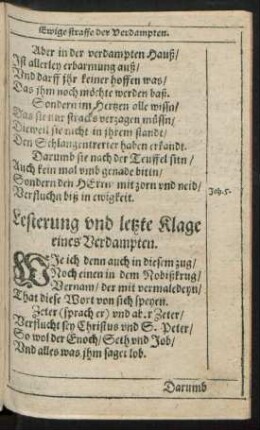 Ewige straffe der Verdampten.
Aber in der verdampten Hauß/
Ist allerley erbarmung auß/
Vnd darff jhr keiner hoffen was/
Das jhm noch möchte werden baß.
Sondern im Hertzen olle wissn/
Das sie nur stracks verzagen müssn/
Dieweil sie nicht in jhrem stande/
Den Schlangentretter haben erkandt.
Darumb sie nach der Teuffel sitn/
Auch kein mal vmb genade bittn/
Sondern den HErrn mit zorn vnd neid/
Verfluchn biß in ewigkeit.
Joh. 5.
Lesterung vnd letzte Klage
eines Verdampten.
WIe ich denn auch in diesem zug/
Noch einen in dem Nobißkrug/
Vernam/ der mit vermaledeyn/
That diese Wort von sich speyen.
Zeter (sprach er) vnd Zeter/
Verflucht sey Christus vnd S. Peter/
So wol der Enoch/ Seth vnd Job/
Vnd alles was jhm saget lob.
Darumb